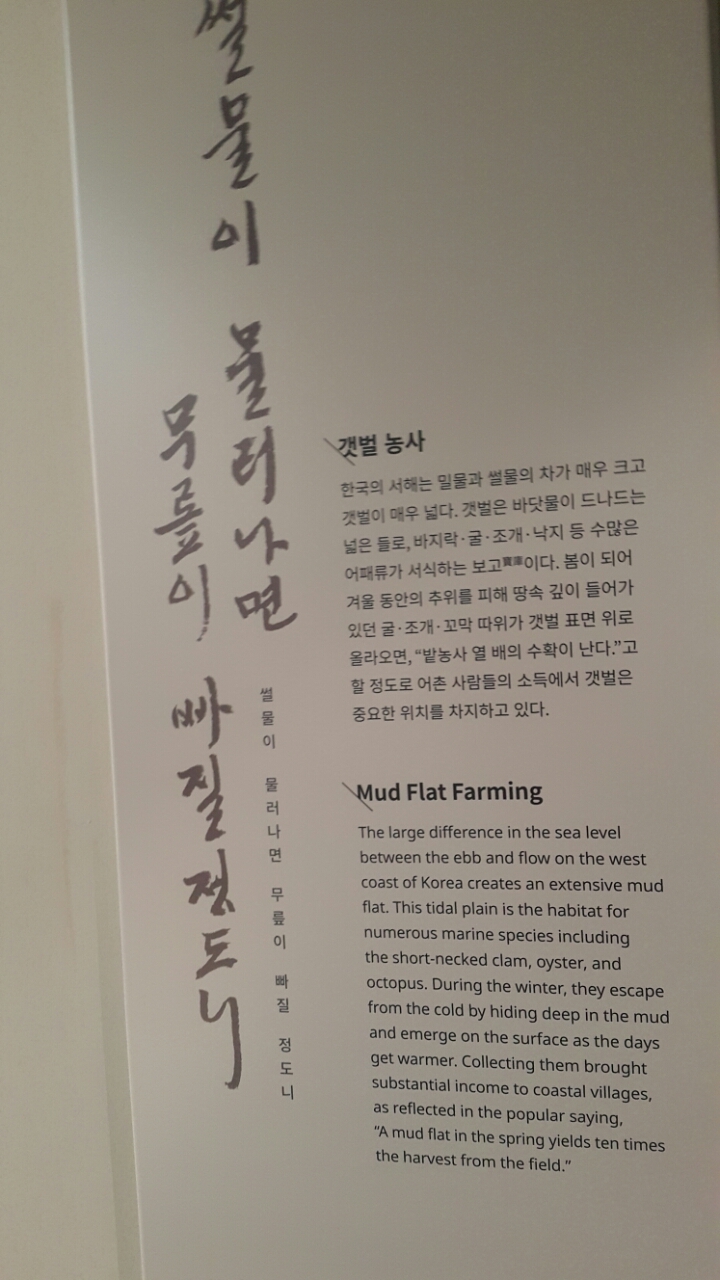 썰물이 물러나면
무릎이 빠질 정도니
썰물이 물러나면 무릎이 빠질 정도니
갯벌 농사
한국의 서해는 밀물과 썰물의 차가 매우 크고
갯벌이 매우 넓다. 갯벌은 바닷물이 드나드는
넓은 들로, 바지락·굴·조개·낙지 등 수많은
어패류가 서식하는 보고寶庫이다. 봄이 되어
겨울 동안의 추위를 피해 땅속 깊이 들어가
있던 굴·조개·꼬막 따위가 갯벌 표면 위로
올라오면, “밭농사 열 배의 수확이 난다.”고
할 정도로 어촌 사람들의 소득에서 갯벌은
중요한 위치를 차지하고 있다.
Mud Flat Farming
The large difference in the sea level
between the ebb and flow on the west
coast of Korea creates an extensive mud
flat. This tidal plain is the habitat for
numerous marine species including
the short-necked clam, oyster, and
octopus. During the winter, they escape
from the cold by hiding deep in the mud
and emerge on the surface as the days
get warmer. Collecting them brought
substantial income to coastal villages,
as reflected in the popular saying,
“A mud flat in the spring yields ten times
the harvest from the field.”